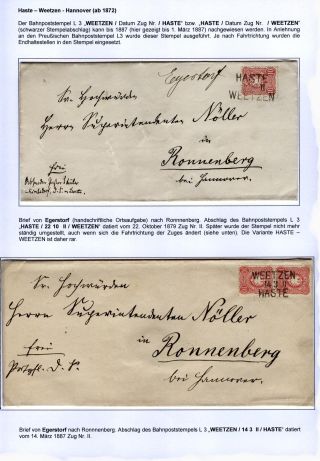 Haste – Weetzen - Hannover (ab 1872)
Der Bahnpoststempel L 3 „WEETZEN / Datum Zug Nr. / HASTE" bzw. „HASTE / Datum Zug Nr. / WEETZEN"
(schwarzer Stempelabschlag) kann bis 1887 (hier gezeigt bis 1. März 1887) nachgewiesen werden. In Anlehnung
an den Preußischen Bahnpoststempel L3 wurde dieser Stempel ausgeführt. Je nach Fahrtrichtung wurden die
Endhaltestellen in den Stempel eingesetzt.
Egestorf
HASTE
II
WEETZEN
Sr. Hochwürden
Herrn Superintendenten Nöller
in
Ronnenberg
bei Hannover.
frei
Brief von Egerstorf (handschriftliche Ortsaufgabe) nach Ronnnenberg. Abschlag des Bahnpoststempels L 3
„HASTE / 22 10 II / WEETZEN" datiert vom 22. Oktober 1879 Zug Nr. II. Später wurde der Stempel nicht mehr
ständig umgestellt, auch wenn sich die Fahrtrichtung der Zuges ändert (siehe unten). Die Variante HASTE –
WEETZEN ist daher rar.
WEETZEN
14 3 II
HASTE
Sr. Hochwürden
Herrn Superintendenten Nöller
in
Ronnenberg
bei Hannover.
frei
Brief von Egerstorf nach Ronnnenberg. Abschlag des Bahnpoststempels L 3 „WEETZEN / 14 3 II / HASTE" datiert
vom 14. März 1887 Zug Nr. II.